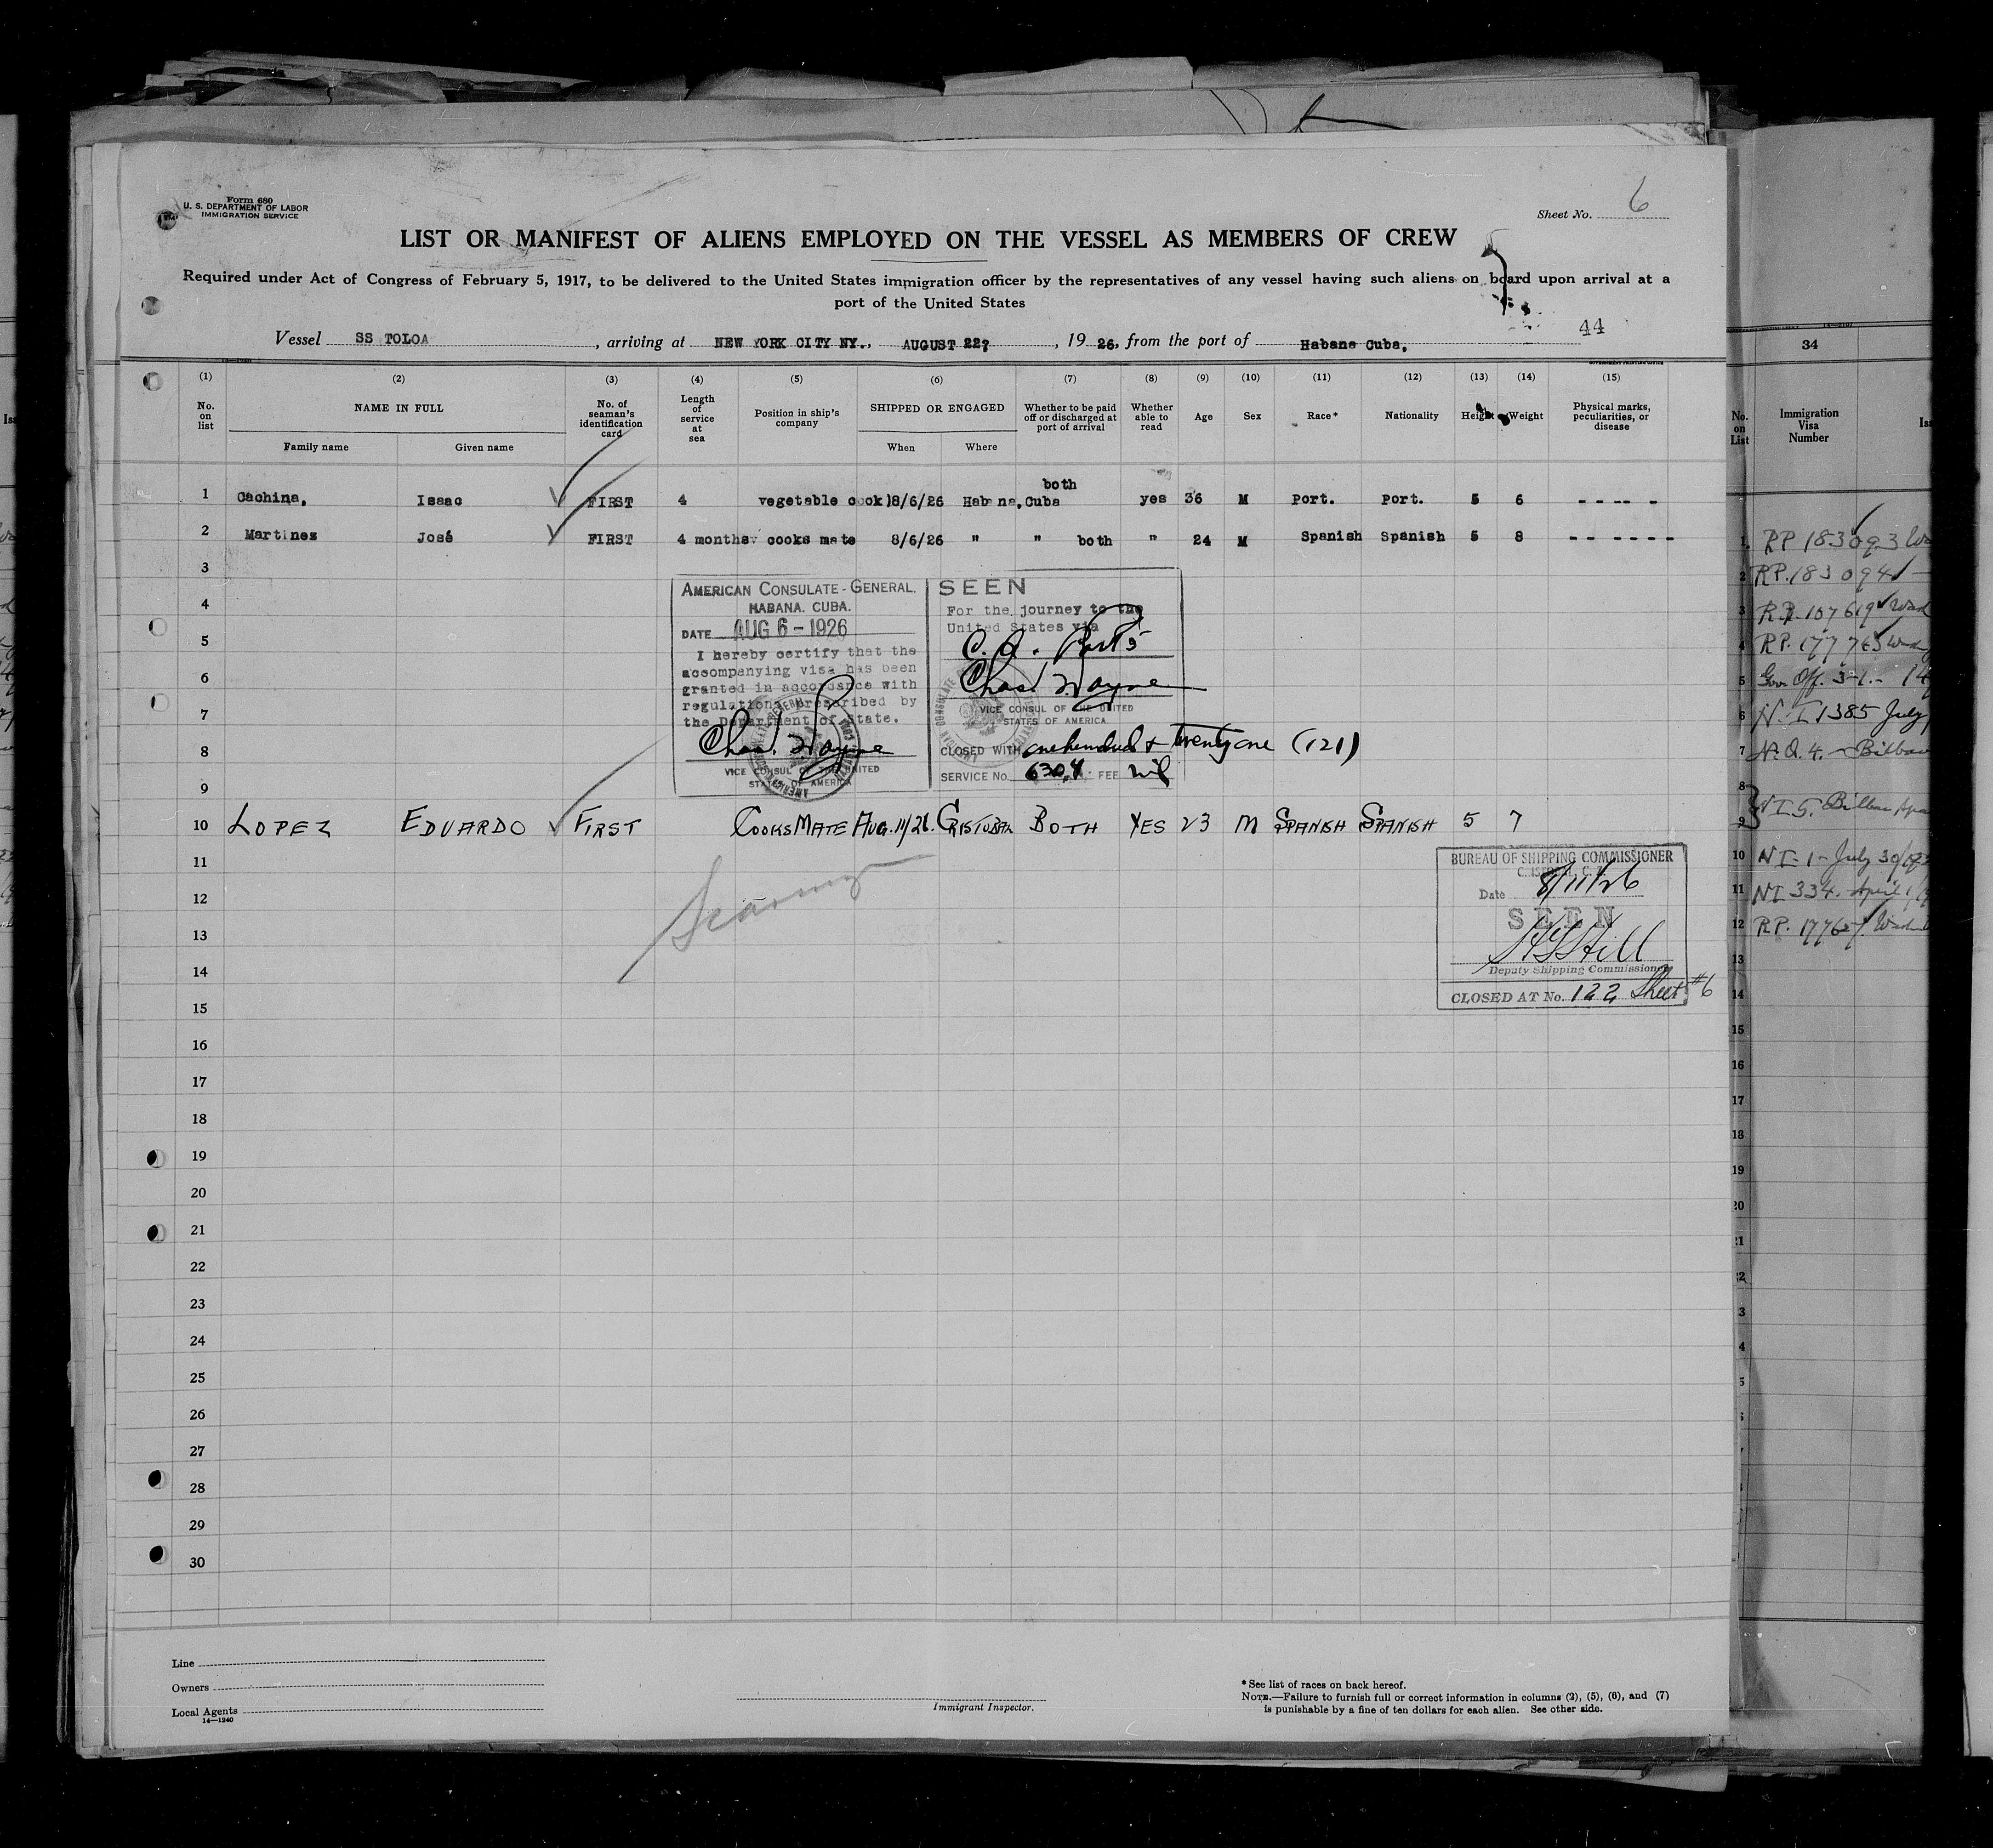 Form 680
U. S. DEPARTMENT OF LABOR
IMMIGRATION SERVICE
Sheet No. 6
LIST OR MANIFEST OF ALIENS EMPLOYED ON THE VESSEL AS MEMBERS OF CREW
Required under Act of Congress of February 5, 1917, to be delivered to the United States immigration officer by the representatives of any vessel having such aliens on board upon arrival at a
port of the United States
44
Vessel SS TOLOA, arriving at NEW YORK CITY NY., AUGUST 22?, 1926, from the port of Habana Cuba.
(1) (2) (3) (4) (5) (6) (7) (8) (9) (10) (11) (12) (13) (14) (15)
No. on list
NAME IN FULL
Family name Given name
No. of seaman's identification card
Length of service at sea
Position in ship's company
SHIPPED OR ENGAGED
When Where
Whether to be paid off or discharged at port of arrival
Whether able to read
Age
Sex
Race*
Nationality
Height
Weight
Physical marks, peculiarities, or disease
both
1 Cachina, Isaac FIRST 4 vegetable cook 8/6/26 Habana,Cuba yes 36 M Port. Port. 5 6 - - -- -
2 Martinez José FIRST 4 months cooks mate 8/6/26 " " both " 24 M Spanish Spanish 5 8 -- - - - -
3
4
5
6
7
8
9
AMERICAN CONSULATE-GENERAL.
HABANA. CUBA.
DATE AUG 6-1926
I hereby certify that the
accompenying visa has been
granted in accordance with
regulations prescribed by
the Department of State.
Chas. Wayne
VICE CONSUL OF THE UNITED
STATES OF AMERICA
SEEN
For the journey to the
United States via
C. Z. Ports
Chas. Wayne
VICE CONSUL OF THE UNITED
STATES OF AMERICA
CLOSED WITH one hundred & twenty one (121)
SERVICE No. 6304 FEE nil
10 LOPEZ EDUARDO FIRST COOKS MATE AUG. 11/26. CRISTOBAL BOTH YES 23 M SPANISH SPANISH 5 7
BUREAU OF SHIPPING COMMISSIONER
Date 8/11/26
SEEN
Deputy Shipping Commissioner
CLOSED AT No. 122 Sheet #6
11
12
13
14
15
16
17
18
19
20
21
22
23
24
25
26
27
28
29
30
Line
Owners
Local Agents
14—1240
Immigrant Inspector.
*See list of races on back hereof.
NOTE.—Failure to furnish full or correct information in columns (2), (5), (6), and (7)
is punishable by a fine of ten dollars for each alien. See other side.
34
No. on List
Immigration Visa Number
1 RP 183093
2 RP. 183094
3 RP. 107619
4 RP. 177763
5 Gov. Off.
6 N-I 1385 July
7 N.Q. 4. - Bilbao
8
9 NI 5. Bilbao
10 NI-1- July 30
11 NI 334. April
12 RP.
13
14
15
16
17
18
19
20